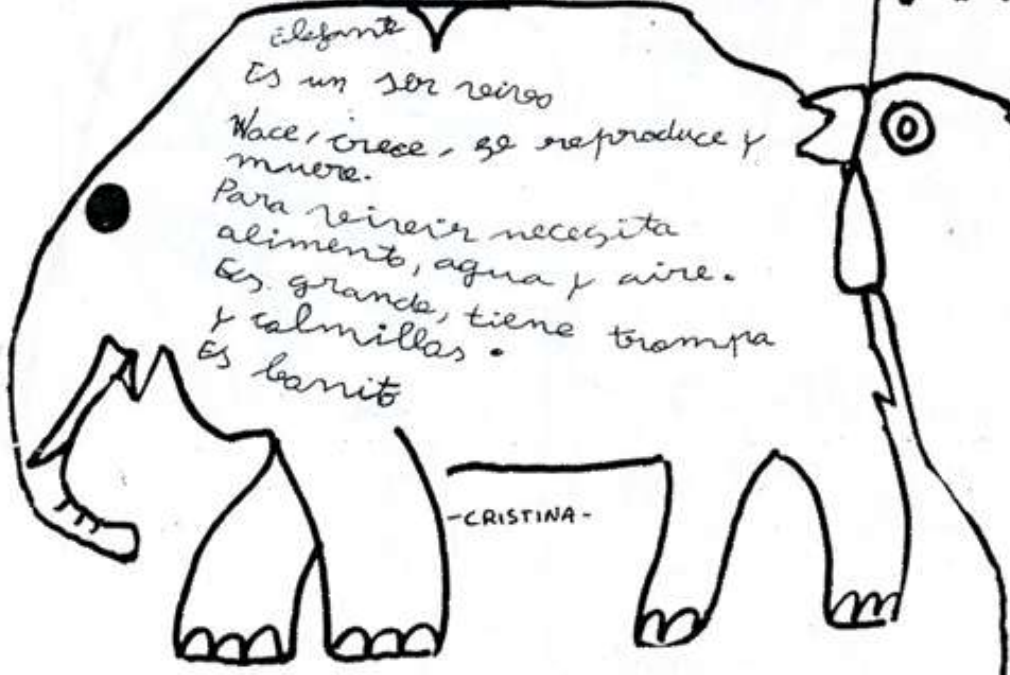 Elefante
Es un ser vivo
Nace, crece, se reproduce y
muere.
Para vivir necesita
alimento, agua y aire.
Es grande, tiene trompa
y colmillos.
Es bonito
-CRISTINA-